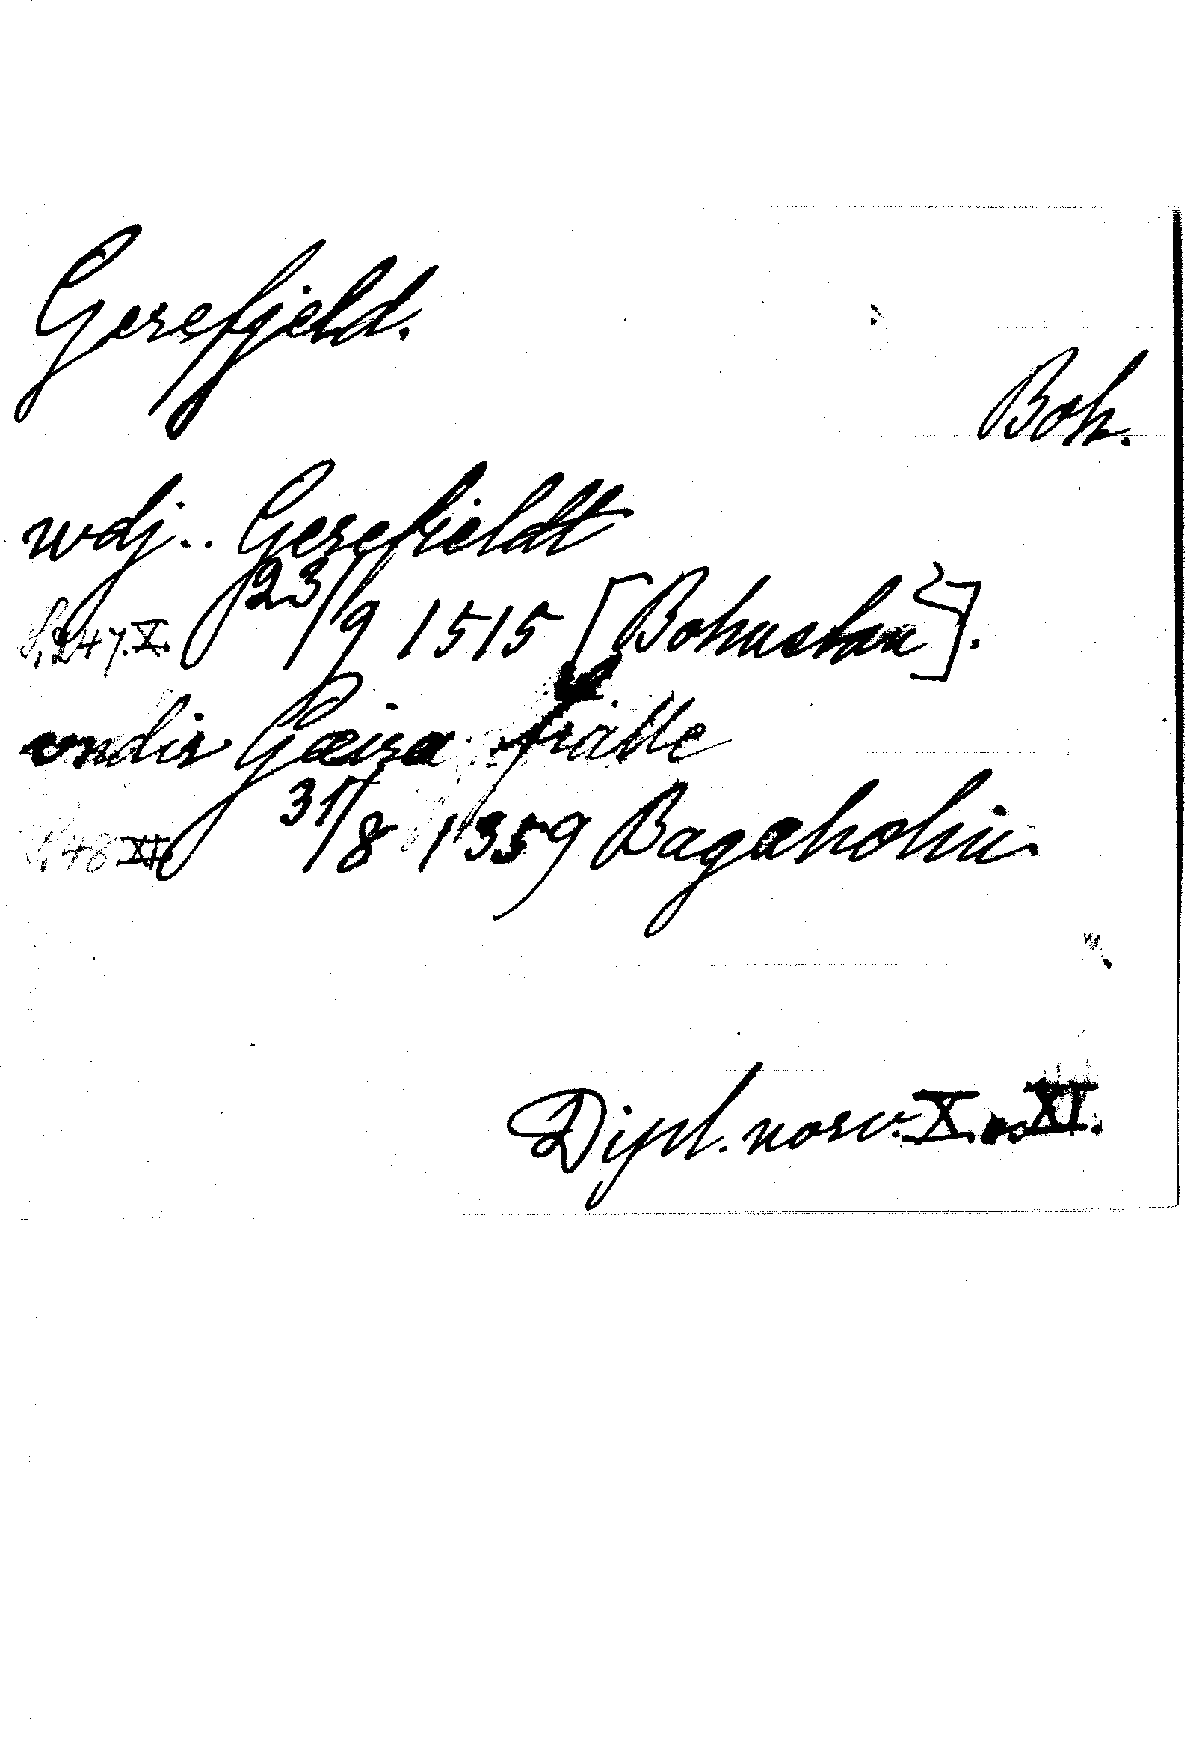 Gerefjeld.
Boh.
wdj.. Gerefieldt
S. 247. X. 23/9 1515 [Bohuslan?].
vndir Gæira fiatte
S. 48 XI. 31/8 1359 Bagaholm.
Dipl. norv. X. o. XI.